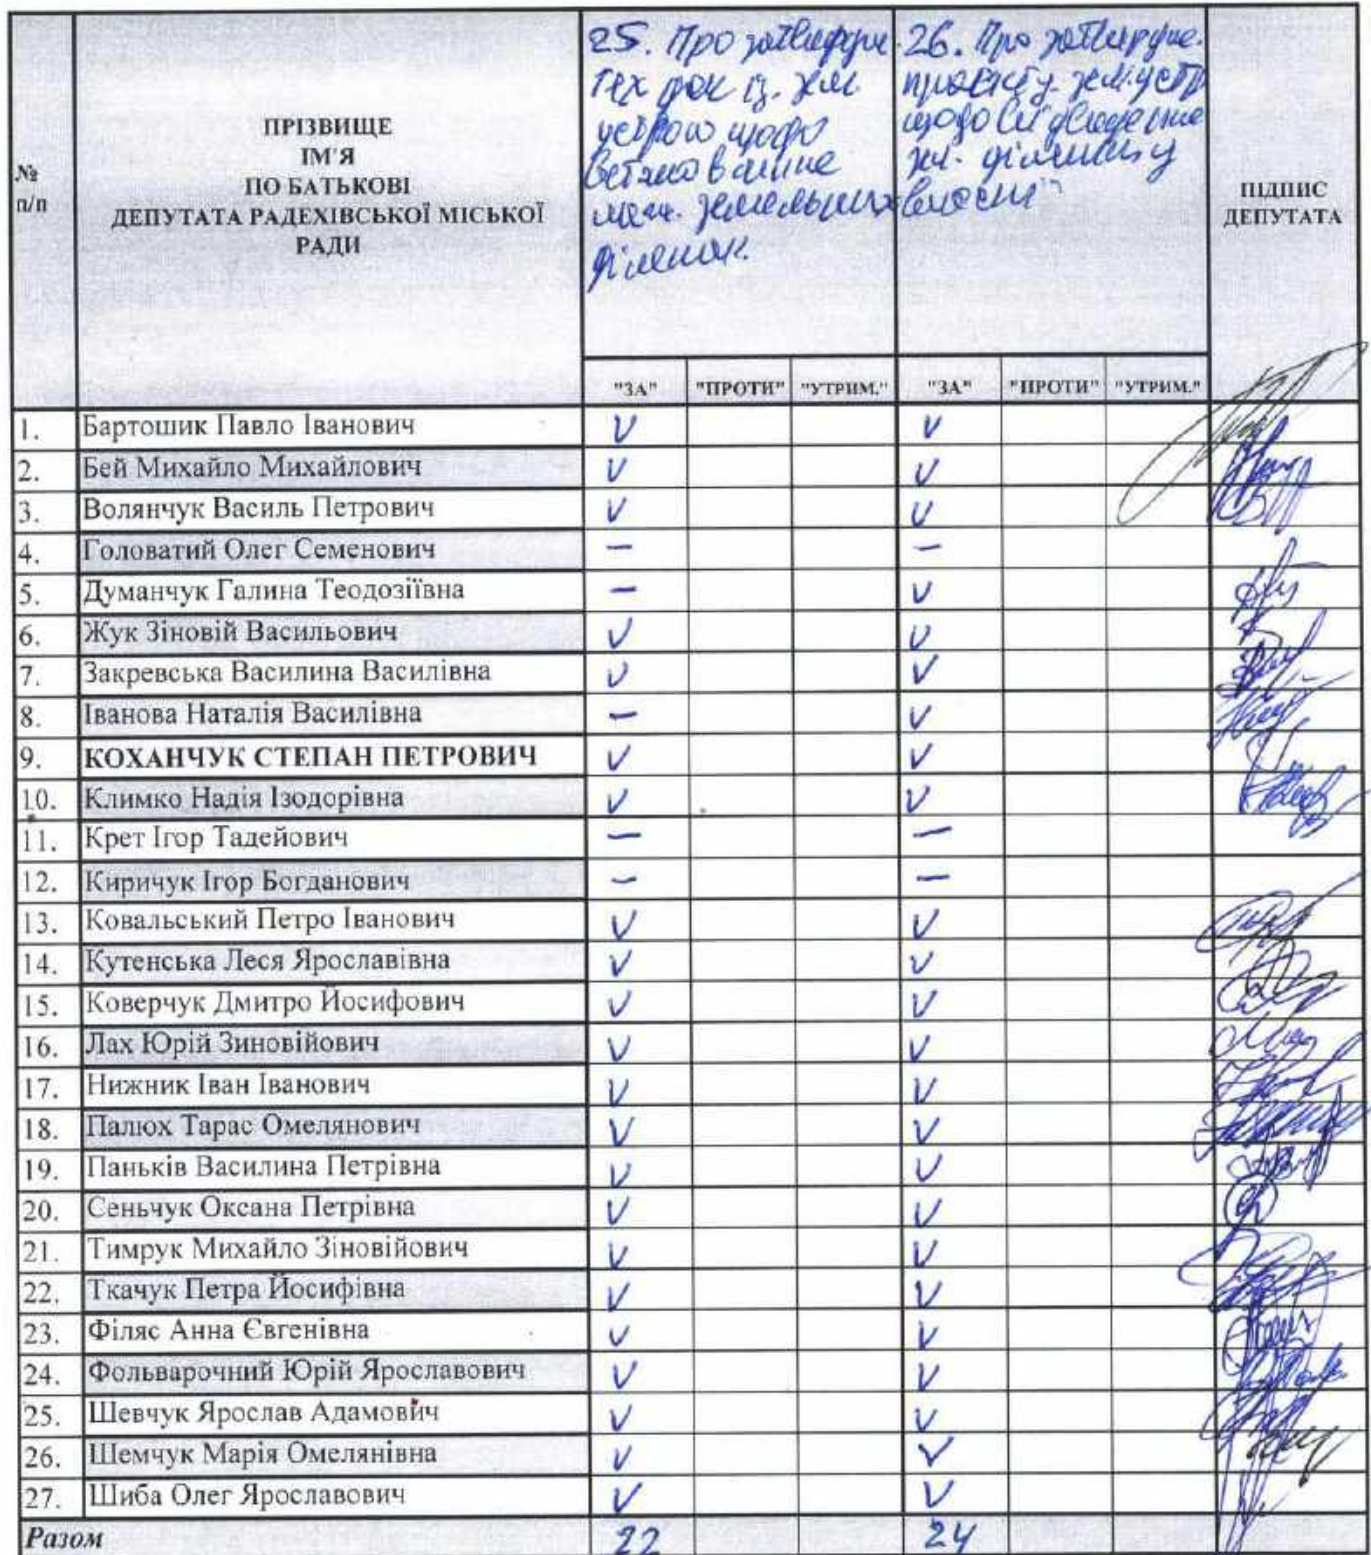 №
п/п
ПРІЗВИЩЕ
ІМ'Я
ПО БАТЬКОВІ
ДЕПУТАТА РАДЕХІВСЬКОЇ МІСЬКОЇ
РАДИ
25. Про затвердже.
тех док із зем.
устрою щодо
встановлення
меж. земельних
ділянок.
26. Про затвердже.
проєкту земустр
щодо відведення
зем. ділянки у
власн
ПІДПИС
ДЕПУТАТА
"ЗА" "ПРОТИ" "УТРИМ." "ЗА" "ПРОТИ" "УТРИМ."
1. Бартошик Павло Іванович V V
2. Бей Михайло Михайлович V V
3. Волянчук Василь Петрович V V
4. Головатий Олег Семенович – –
5. Думанчук Галина Теодозіївна – V
6. Жук Зіновій Васильович V V
7. Закревська Василина Василівна V V
8. Іванова Наталія Василівна – V
9. КОХАНЧУК СТЕПАН ПЕТРОВИЧ V V
10. Климко Надія Ізодорівна V V
11. Крет Ігор Тадейович – –
12. Киричук Ігор Богданович – –
13. Ковальський Петро Іванович V V
14. Кутенська Леся Ярославівна V V
15. Коверчук Дмитро Йосифович V V
16. Лах Юрій Зиновійович V V
17. Нижник Іван Іванович V V
18. Палюх Тарас Омелянович V V
19. Паньків Василина Петрівна V V
20. Сеньчук Оксана Петрівна V V
21. Тимрук Михайло Зіновійович V V
22. Ткачук Петра Йосифівна V V
23. Філяс Анна Євгенівна V V
24. Фольварочний Юрій Ярославович V V
25. Шевчук Ярослав Адамович V V
26. Шемчук Марія Омелянівна V V
27. Шиба Олег Ярославович V V
Разом 22 24